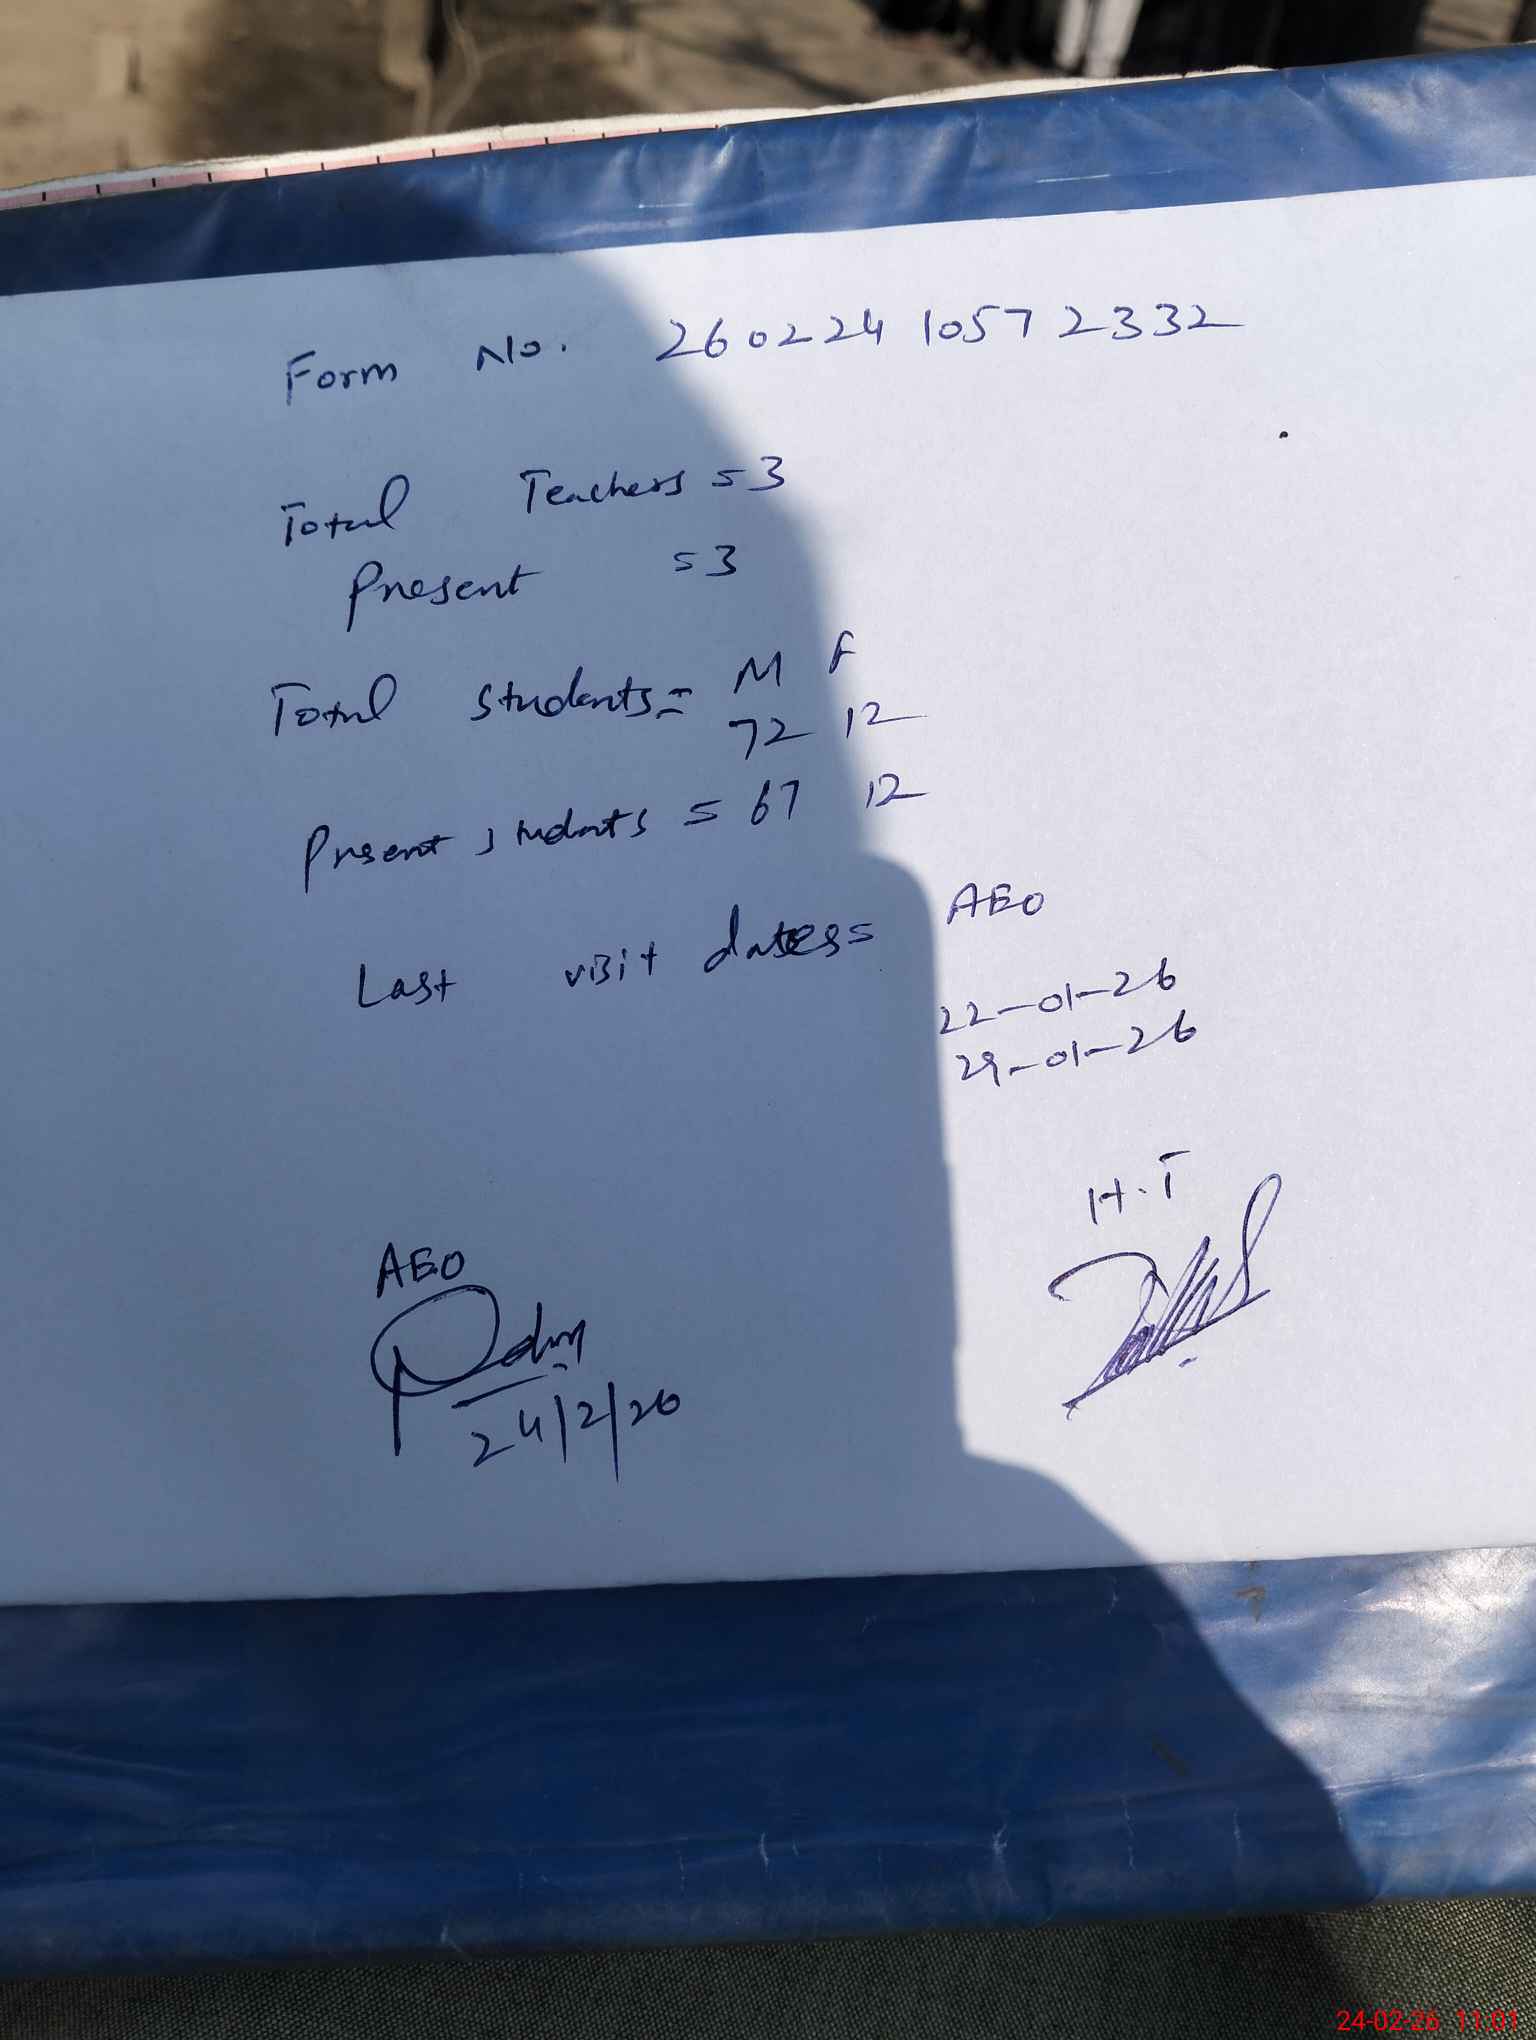 Form No. 260224 10572332
Total Teachers = 3
Present = 3
M F
Total students =
72 12
Present students = 67 12
Last visit dates = AEO
22-01-26
29-01-26
H.T
AEO
24/2/26
24-02-26 11:01